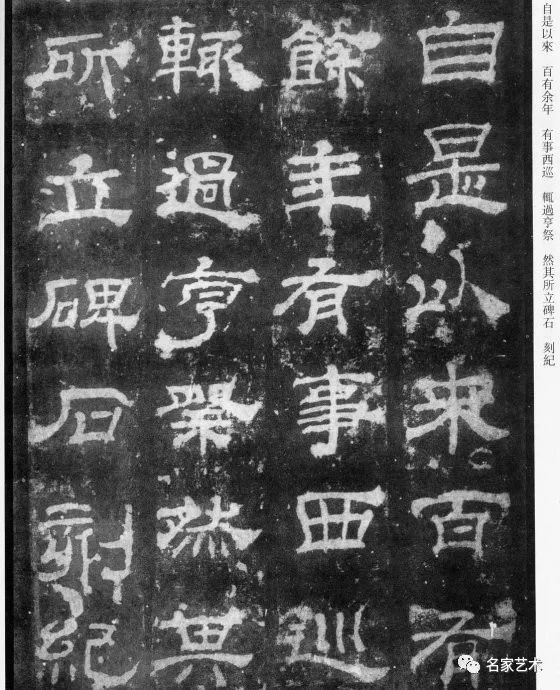 自是以來 百有余年 有事西巡 輒過亨祭 然其所立碑石 刻紀
自是以來百有
餘年有事西巡
輒過亨祭然其
所立碑石刻紀
名家艺术